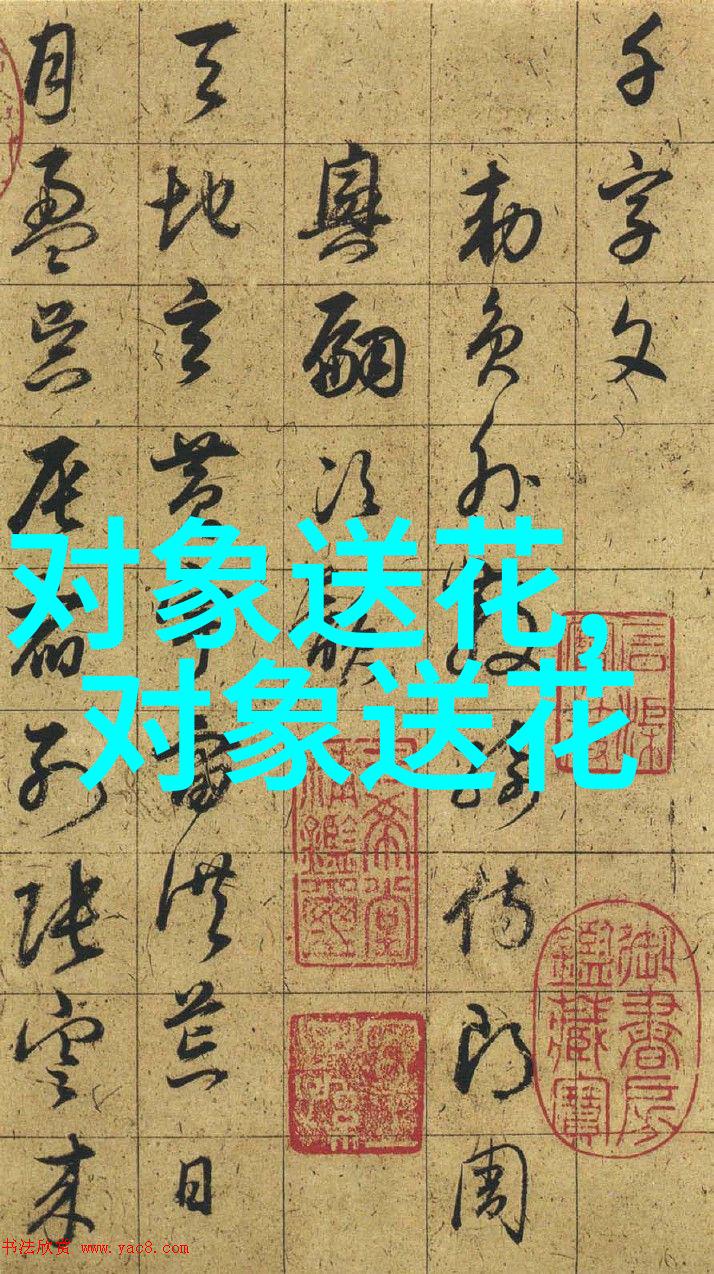 千字文
勅員外散騎侍郎周
興嗣次韻
天地玄黄宇宙洪荒日
月盈昃辰宿列張寒来
对象送花,
对象送花
御書房鑑藏寶
三希堂精鑑璽
书法欣赏 www.yac8.com